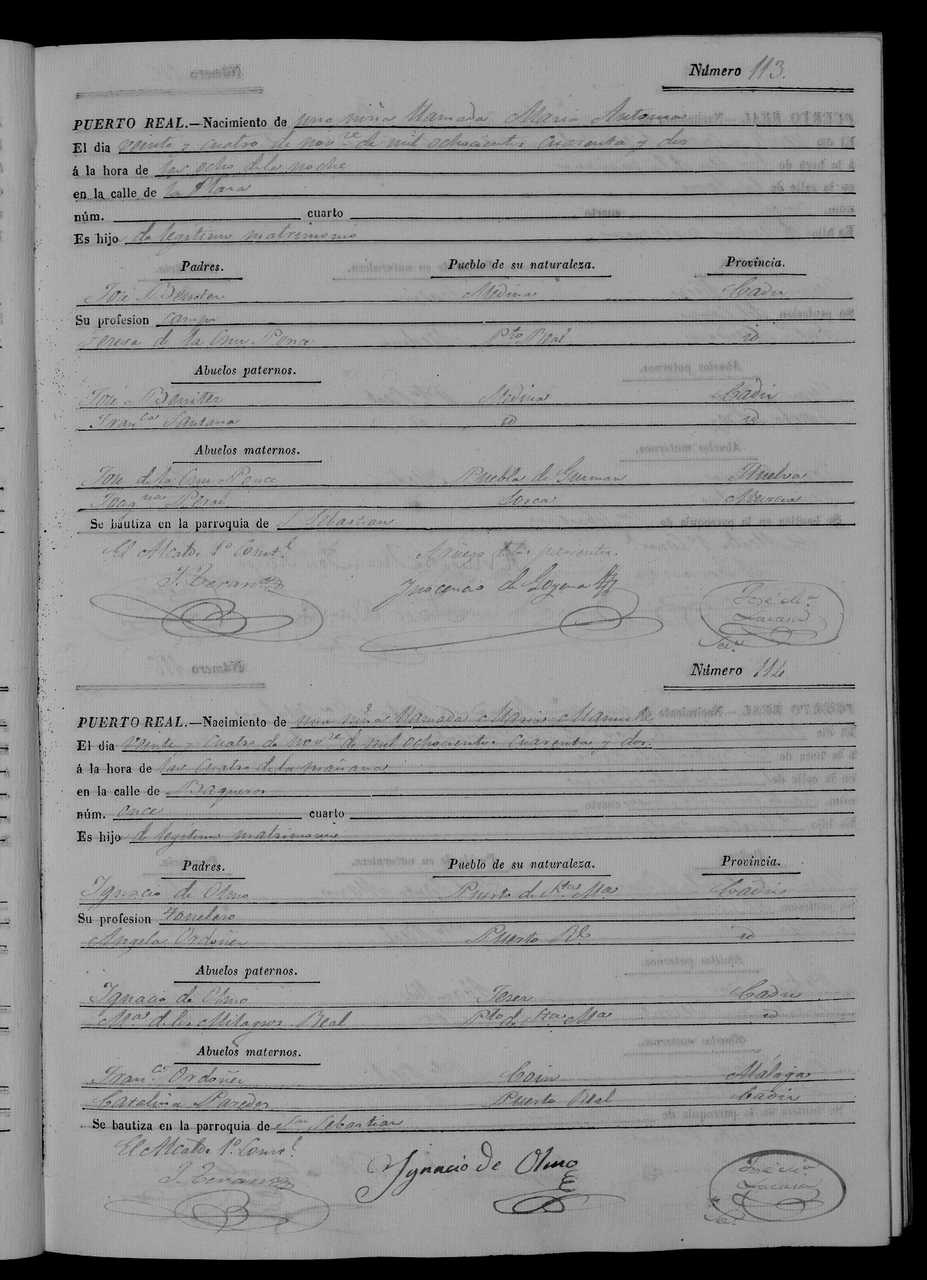 Número 113.
PUERTO REAL.—Nacimiento de una niña llamada Maria Antonia
El dia veinte y cuatro de nov.ce de mil ochocientos cuarenta y dos
á la hora de las ocho de la noche
en la calle de la Plaza
núm. cuarto
Es hijo de legitimo matrimonio
Padres. Pueblo de su naturaleza. Provincia.
José Benitez Medina Cadiz
Su profesion campo
Teresa de la Cruz Ponce Pto Real id
Abuelos paternos.
José Benitez Medina Cadiz
Fran.ca Santana id id
Abuelos maternos.
José de la Cruz Ponce Puebla de Guzman Huelva
Lorca Murcia
Se bautiza en la parroquia de S. Sebastian
El Alcalde 1º Const.l A ruego de los presentes.
Inocencio de
José de
Lazaro
Número 114
PUERTO REAL.—Nacimiento de una niña llamada Maria Manuela
El dia veinte y cuatro de nov.e de mil ochocientos cuarenta y dos.
á la hora de las cuatro de la mañana
en la calle de Baqueros
núm. once cuarto
Es hijo de legitimo matrimonio
Padres. Pueblo de su naturaleza. Provincia.
Ignacio de Olmo Puerto de Sta Ma Cadiz
Su profesion Tonelero
Angela Ordoñez Puerto Rl id
Abuelos paternos.
Ignacio de Olmo Jerez Cadiz
Ma de los Milagros Real Pto de Sta Ma id
Abuelos maternos.
Fran.co Ordoñez Coin Málaga
Catalina Paredes Puerto Real Cadiz
Se bautiza en la parroquia de San Sebastian
El Alcalde 1º Const.l
Ignacio de Olmo
José de
Lazaro